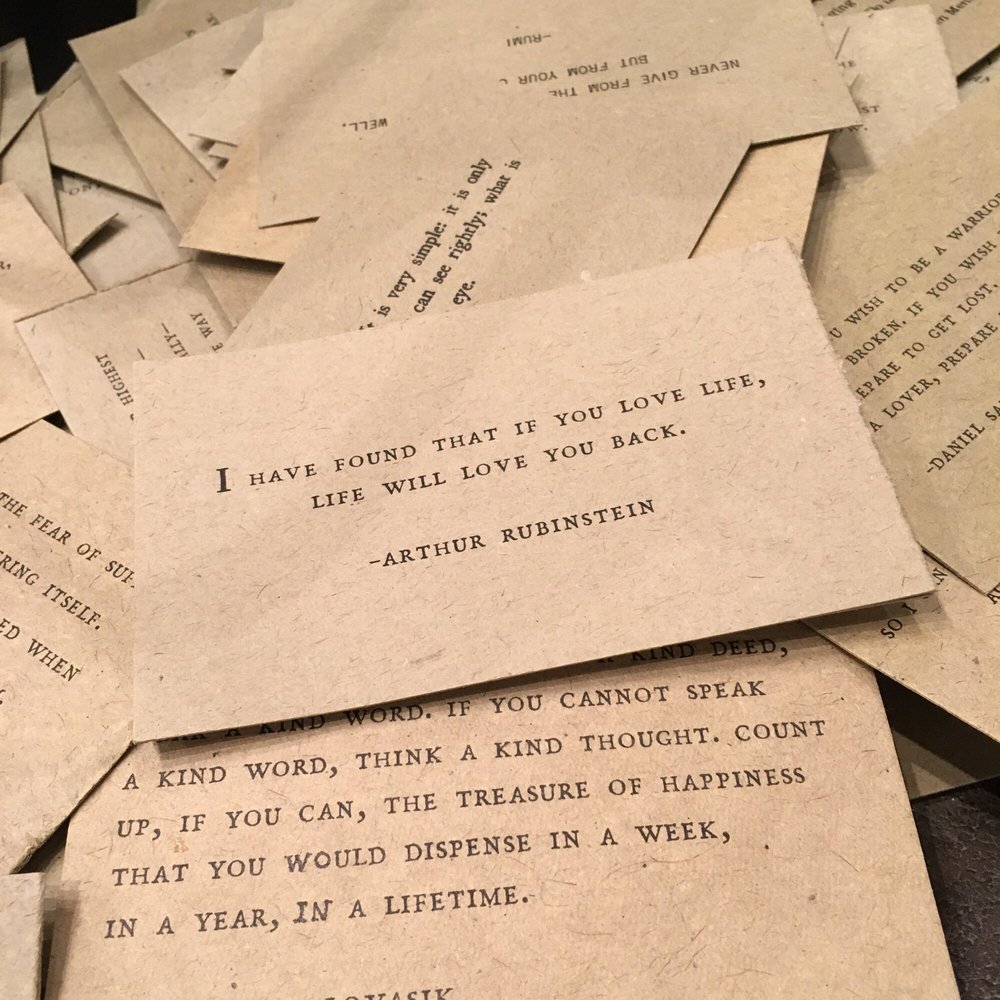 I HAVE FOUND THAT IF YOU LOVE LIFE,
LIFE WILL LOVE YOU BACK.
-ARTHUR RUBINSTEIN
A KIND DEED,
A KIND WORD. IF YOU CANNOT SPEAK
A KIND WORD, THINK A KIND THOUGHT. COUNT
UP, IF YOU CAN, THE TREASURE OF HAPPINESS
THAT YOU WOULD DISPENSE IN A WEEK,
IN A YEAR, IN A LIFETIME.
LOVASIK
WELL.
NEVER GIVE FROM THE
BUT FROM YOUR
-RUMI
is very simple: it is only
can see rightly; what is
eye.
WISH TO BE A WARRIOR
BROKEN. IF YOU WISH
TO GET LOST.
A LOVER, PREPARE
-DANIEL
THE FEAR OF
ITSELF.
WHEN
HIGHEST
WAY
SO I